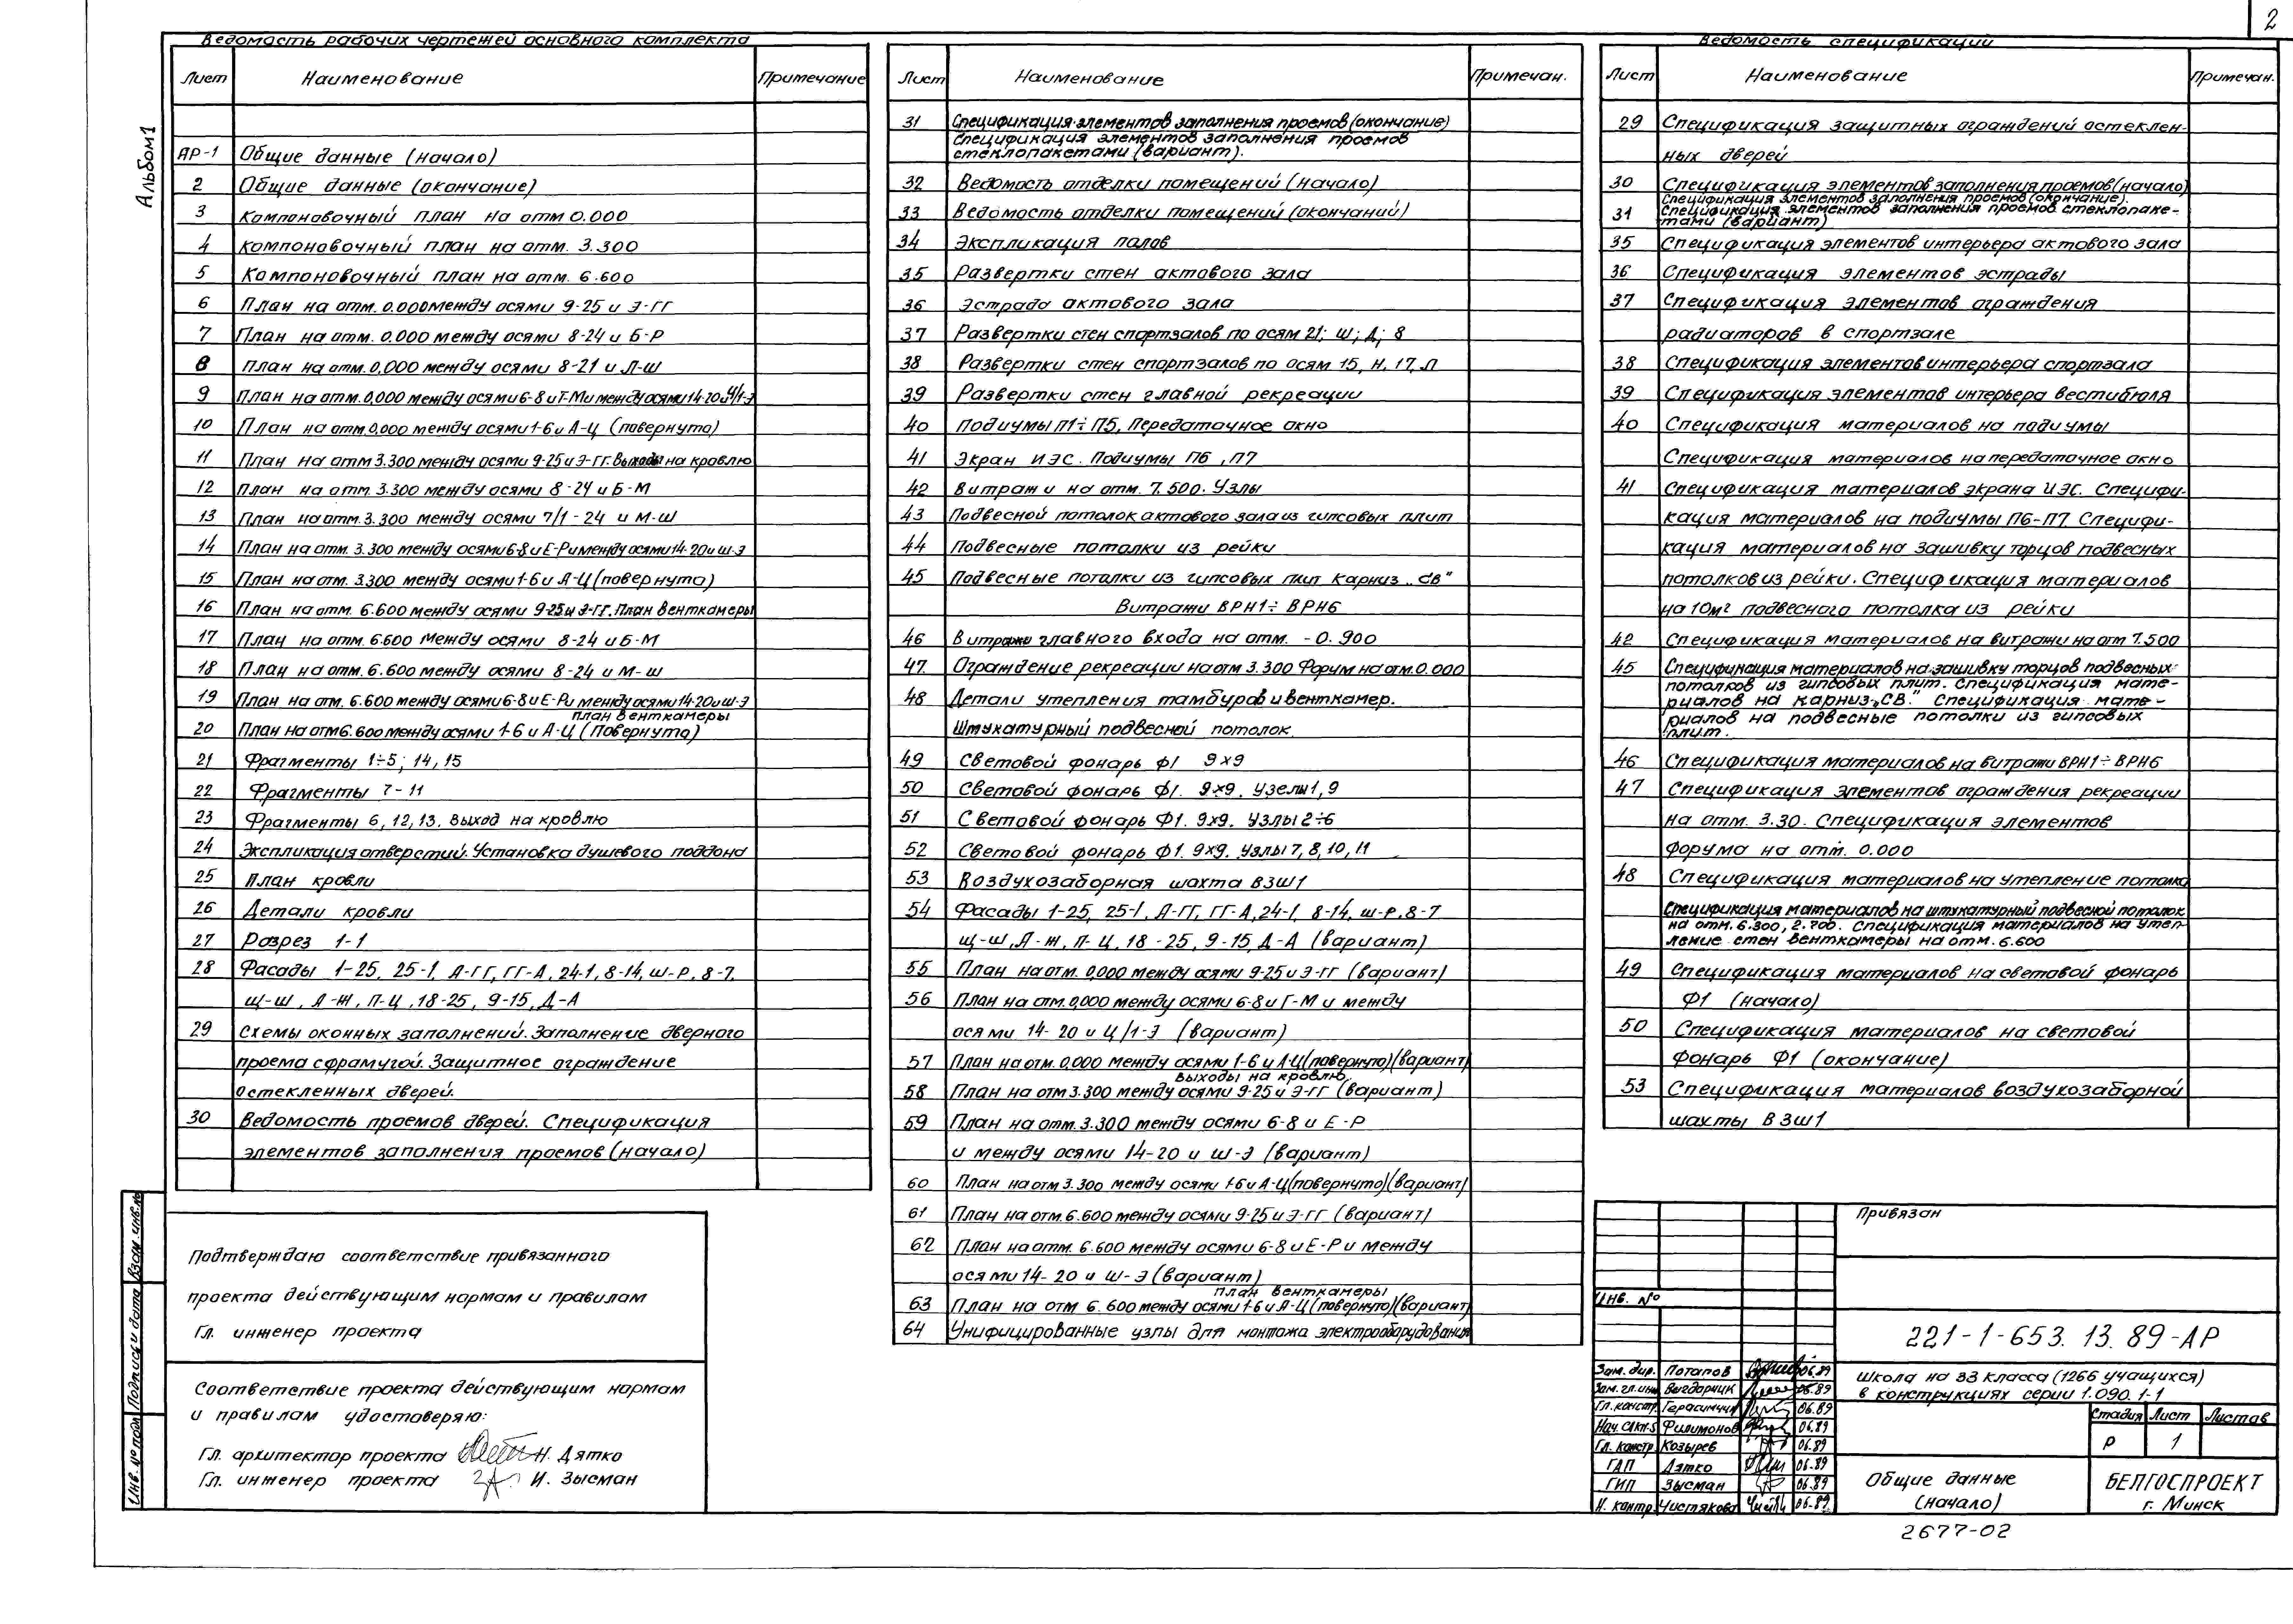 2
Альбом 1
Ведомость рабочих чертежей основного комплекта
Лист Наименование Примечание
АР-1 Общие данные (начало)
2 Общие данные (окончание)
3 Компоновочный план на отм 0.000
4 компоновочный план на отм. 3.300
5 Компоновочный план на отм. 6.600
6 План на отм. 0.000 между осями 9-25 и Э-ГГ
7 План на отм. 0.000 между осями 8-24 и Б-Р
8 План на отм. 0,000 между осями 8-21 и Л-Ш
9 План на отм. 0,000 между осями 6-8 и Г-М и между осями 14-20 и Ц/1-Э
10 План на отм 0,000 между осями 1-6 и А-Ц (повернуто)
11 План на отм 3.300 между осями 9-25 и Э-ГГ. Выходы на кровлю
12 План на отм. 3.300 между осями 8-24 и Б-М
13 План на отм. 3.300 между осями 7/1-24 и М-Ш
14 План на отм. 3.300 между осями 6-8 и Е-Р и между осями 14-20 и Ш-Э
15 План на отм. 3.300 между осями 1-6 и А-Ц (повернуто)
16 План на отм. 6.600 между осями 9-25 и Э-ГГ. План венткамеры
17 План на отм. 6.600 между осями 8-24 и Б-М
18 План на отм. 6.600 между осями 8-24 и М-Ш
19 План на отм. 6.600 между осями 6-8 и Е-Р и между осями 14-20 и Ш-Э
план венткамеры
20 План на отм 6.600 между осями 1-6 и А-Ц (повернуто)
21 Фрагменты 1÷5; 14, 15
22 Фрагменты 7-11
23 Фрагменты 6, 12, 13. Выход на кровлю
24 Экспликация отверстий. Установка душевого поддона
25 План кровли
26 Детали кровли
27 Разрез 1-1
28 Фасады 1-25, 25-1, А-ГГ, ГГ-А, 24-1, 8-14, Ш-Р, 8-7,
Щ-Ш, А-Ж, П-Ц, 18-25, 9-15, Д-А
29 Схемы оконных заполнений. Заполнение дверного
проема с фрамугой. Защитное ограждение
остекленных дверей.
30 Ведомость проемов дверей. Спецификация
элементов заполнения проемов (начало)
Лист Наименование Примечан.
31 Спецификация элементов заполнения проемов (окончание)
Спецификация элементов заполнения проемов
стеклопакетами (вариант).
32 Ведомость отделки помещений (начало)
33 Ведомость отделки помещений (окончаний)
34 Экспликация полов
35 Развертки стен актового зала
36 Эстрада актового зала
37 Развертки стен спортзалов по осям 21; Ш; Д; 8
38 Развертки стен спортзалов по осям 15, Н, 17, Л
39 Развертки стен главной рекреации
40 Подиумы П1÷П5, Передаточное окно
41 Экран ИЭС. Подиумы П6, П7
42 Витражи на отм. 7.500. Узлы
43 Подвесной потолок актового зала из гипсовых плит
44 Подвесные потолки из рейки
45 Подвесные потолки из гипсовых плит Карниз „СВ"
Витражи ВРН1÷ВРН6
46 Витражи главного входа на отм. -0.900
47 Ограждение рекреации на отм 3.300 Форум на отм. 0.000
48 Детали утепления тамбуров и венткамер.
Штукатурный подвесной потолок
49 Световой фонарь Ф1 9х9
50 Световой фонарь Ф1. 9х9. Узелы 1, 9
51 Световой фонарь Ф1. 9х9. Узлы 2÷6
52 Световой фонарь Ф1. 9х9. Узлы 7, 8, 10, 11
53 Воздухозаборная шахта ВЗШ1
54 Фасады 1-25, 25-1, А-ГГ, ГГ-А, 24-1, 8-14, Ш-Р, 8-7
Щ-Ш, А-Ж, П-Ц, 18-25, 9-15, Д-А (вариант)
55 План на отм. 0,000 между осями 9-25 и Э-ГГ (вариант)
56 План на отм. 0,000 между осями 6-8 и Г-М и между
осями 14-20 и Ц/1-Э (вариант)
57 План на отм. 0,000 между осями 1-6 и А-Ц (повернуто) (вариант)
выходы на кровлю
58 План на отм 3.300 между осями 9-25 и Э-ГГ (вариант)
59 План на отм. 3.300 между осями 6-8 и Е-Р
и между осями 14-20 и Ш-Э (вариант)
60 План на отм 3.300 между осями 1-6 и А-Ц (повернуто) (вариант)
61 План на отм. 6.600 между осями 9-25 и Э-ГГ (вариант)
62 План на отм. 6.600 между осями 6-8 и Е-Р и между
осями 14-20 и Ш-Э (вариант)
План венткамеры
63 План на отм 6.600 между осями 1-6 и А-Ц (повернуто) (вариант)
64 Унифицированные узлы для монтажа электрооборудования
Ведомость спецификаций
Лист Наименование Примечан.
29 Спецификация защитных ограждений остеклен-
ных дверей
30 Спецификация элементов заполнения проемов (начало)
Спецификация элементов заполнения проемов (окончание).
31 Спецификация элементов заполнения проемов стеклопаке-
тами (вариант)
35 Спецификация элементов интерьера актового зала
36 Спецификация элементов эстрады
37 Спецификация элементов ограждения
радиаторов в спортзале
38 Спецификация элементов интерьера спортзала
39 Спецификация элементов интерьера вестибюля
40 Спецификация материалов на подиумы
Спецификация материалов на передаточное окно
41 Спецификация материалов экрана ИЭС. Специфи-
кация материалов на подиумы П6-П7 Специфи-
кация материалов на зашивку торцов подвесных
потолков из рейки. Спецификация материалов
на 10м² подвесного потолка из рейки
42 Спецификация материалов на витражи на отм 7.500
45 Спецификация материалов на зашивку торцов подвесных
потолков из гипсовых плит. Спецификация мате-
риалов на карниз „СВ". Спецификация мате-
риалов на подвесные потолки из гипсовых
плит.
46 Спецификация материалов на витражи ВРН1÷ВРН6
47 Спецификация элементов ограждения рекреации
на отм. 3.30. Спецификация элементов
форума на отм. 0.000
48 Спецификация материалов на утепление потолка
Спецификация материалов на штукатурный подвесной потолок
на отм. 6.300, 2.700. Спецификация материалов на утеп-
ление стен венткамеры на отм. 6.600
49 Спецификация материалов на световой фонарь
Ф1 (начало)
50 Спецификация материалов на световой
фонарь Ф1 (окончание)
53 Спецификация материалов воздухозаборной
шахты ВЗШ1
Подтверждаю соответствие привязанного
проекта действующим нормам и правилам
Гл. инженер проекта
Соответствие проекта действующим нормам
и правилам удостоверяю:
Гл. архитектор проекта Н. Дятко
Гл. инженер проекта И. Зысман
Взам. инв. №
Подпись и дата
Инв. № подл.
Привязан
Инв. №
221-1-653.13.89-АР
Зам. дир. Потапов 06.89
Зам. гл. инж. Выгдорчик 06.89
Гл. констр. 06.89
Нач. САКП-5 Филимонов 06.89
Гл. констр. Козырев 06.89
ГАП Дятко 06.89
ГИП Зысман 06.89
Н. контр. Чистякова 06.89
Школа на 33 класса (1266 учащихся)
в конструкциях серии 1.090.1-1
Стадия Лист Листов
Р 1
Общие данные
(начало)
БЕЛГОСПРОЕКТ
г. Минск
2677-02